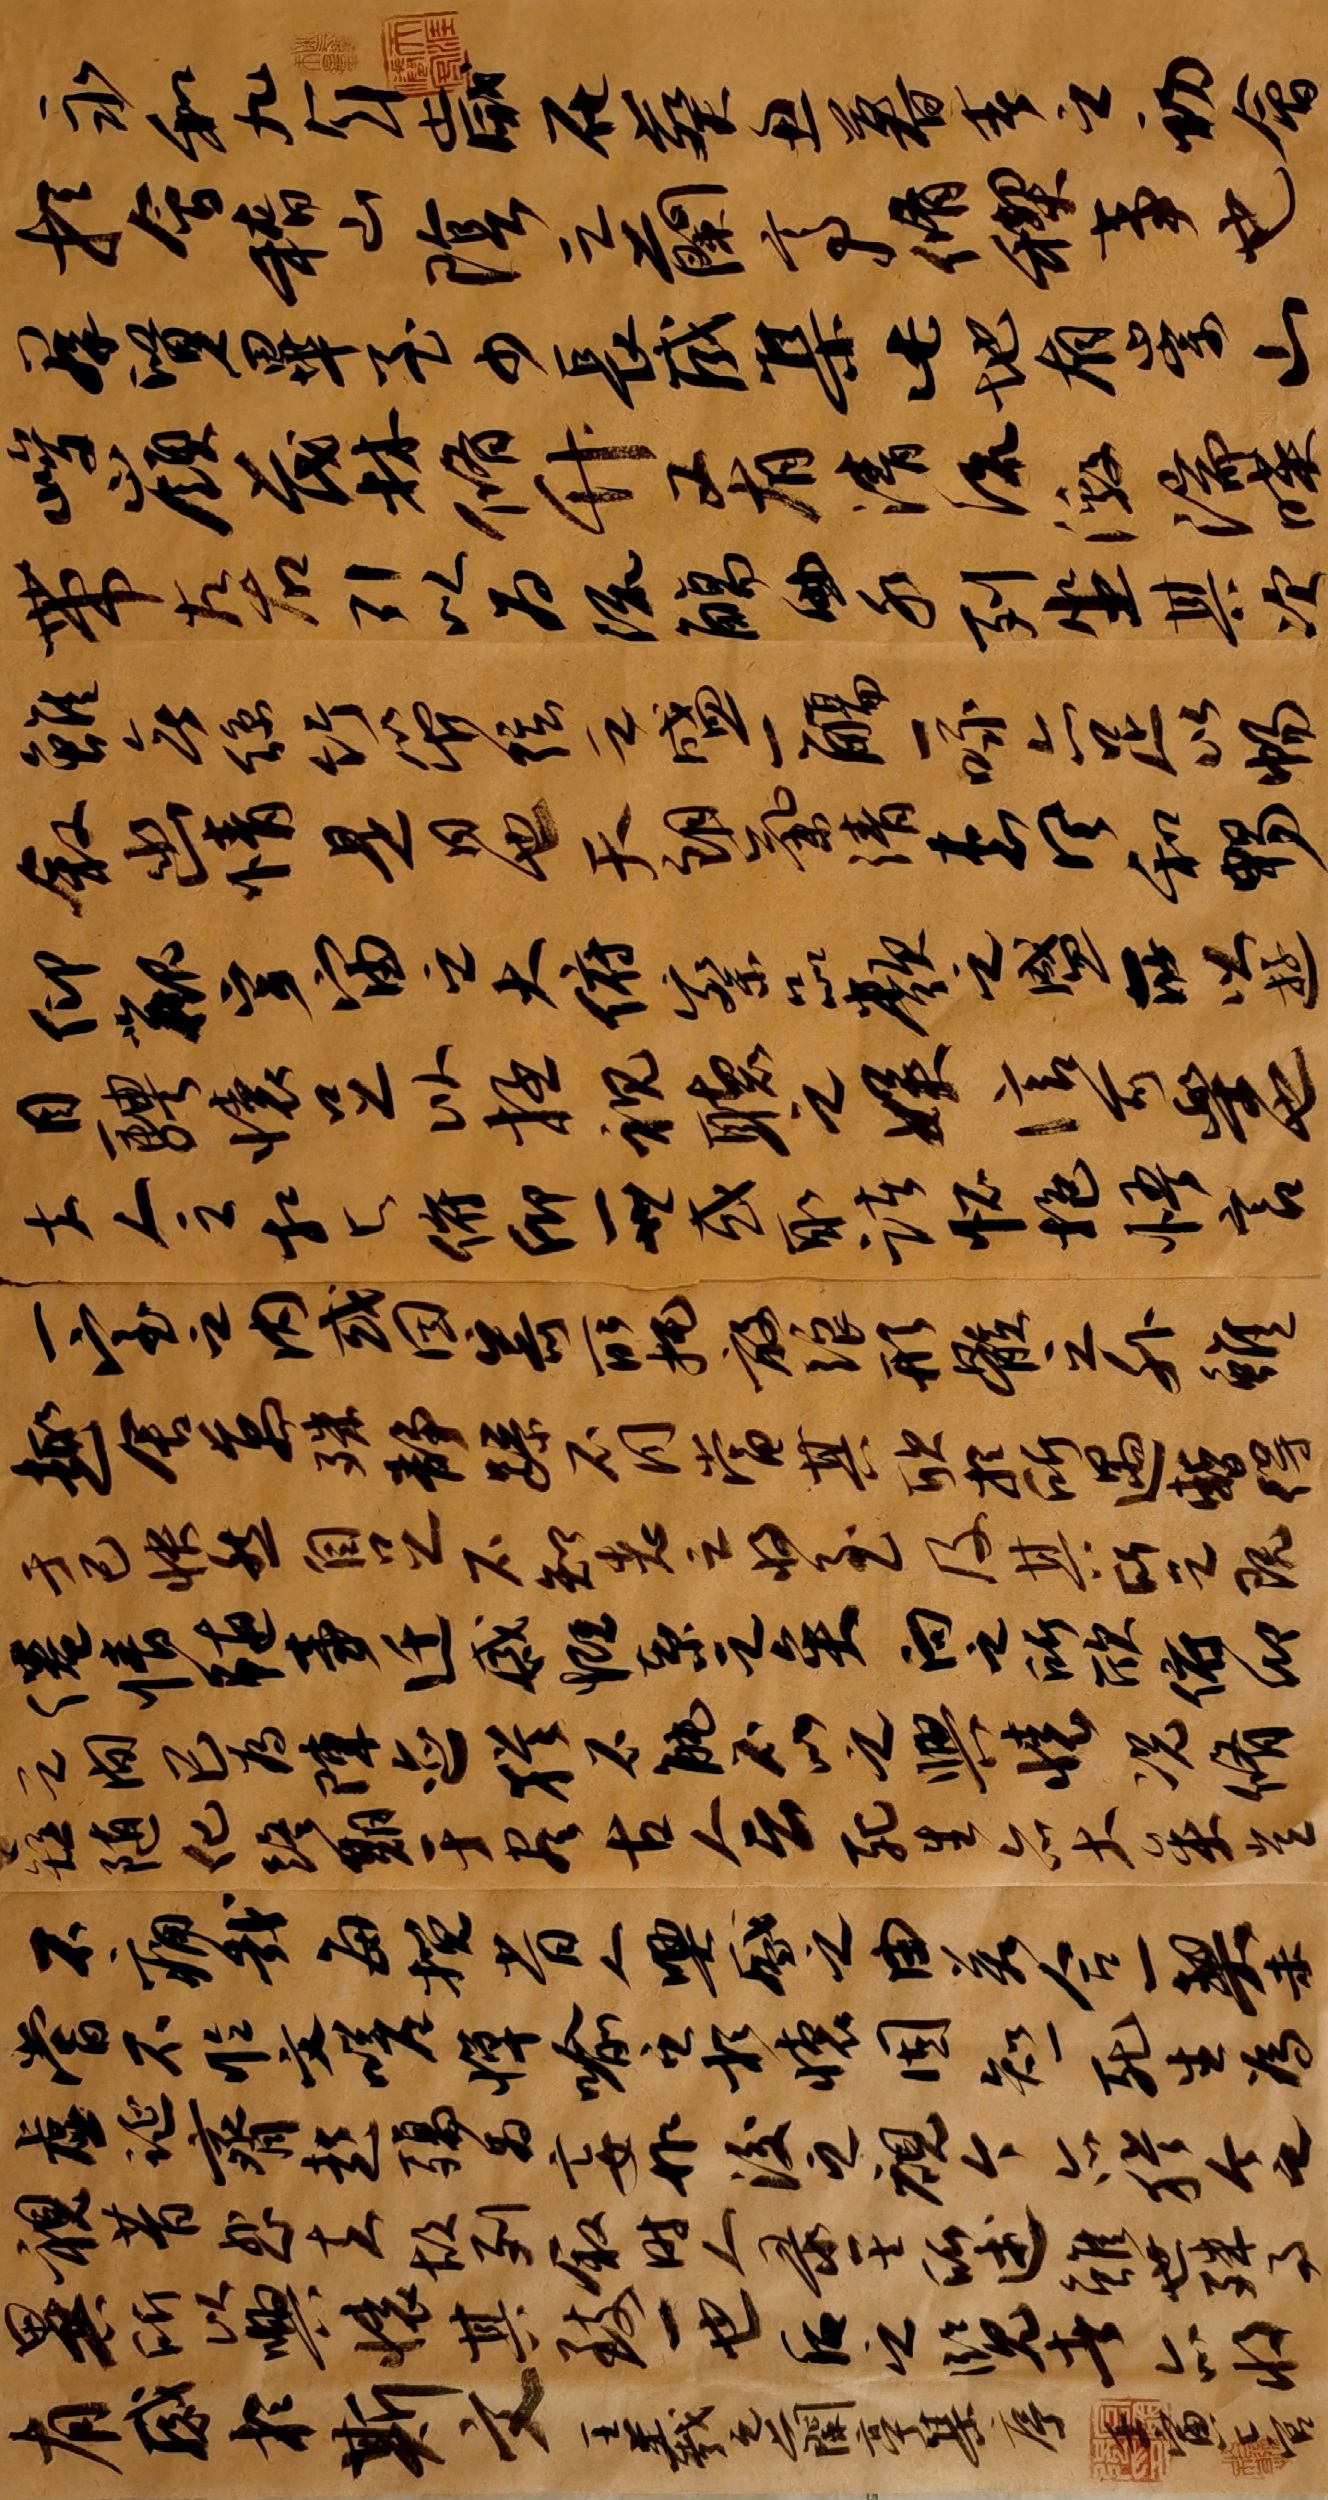 永和九年歲在癸丑暮春之初會
於會稽山陰之蘭亭脩禊事也
群賢畢至少長咸集此地有崇山
峻嶺茂林脩竹又有清流激湍暎
帶左右引以為流觴曲水列坐其次
雖無絲竹管弦之盛一觴一詠亦足以暢
敘幽情是日也天朗氣清惠風和暢
仰觀宇宙之大俯察品類之盛所以遊
目騁懷足以極視聽之娛信可樂也
夫人之相與俯仰一世或取諸懷抱悟言
一室之內或因寄所託放浪形骸之外雖
趣舍萬殊靜躁不同當其欣於所遇暫得
于己怏然自足不知老之將至及其所之既
倦情隨事遷感慨系之矣向之所欣俯仰
之間已為陳迹猶不能不以之興懷況脩
短隨化終期于盡古人云死生亦大矣豈
不痛哉每攬昔人興感之由若合一契未
嘗不臨文嗟悼喻之於懷固知一死生為
虛誕齊彭殤為妄作後之視今亦猶今之
視昔悲夫故列敘時人錄其所述雖世殊事
異所以興懷其致一也后之覽者亦將
有感於斯文 王羲之蘭亭集序